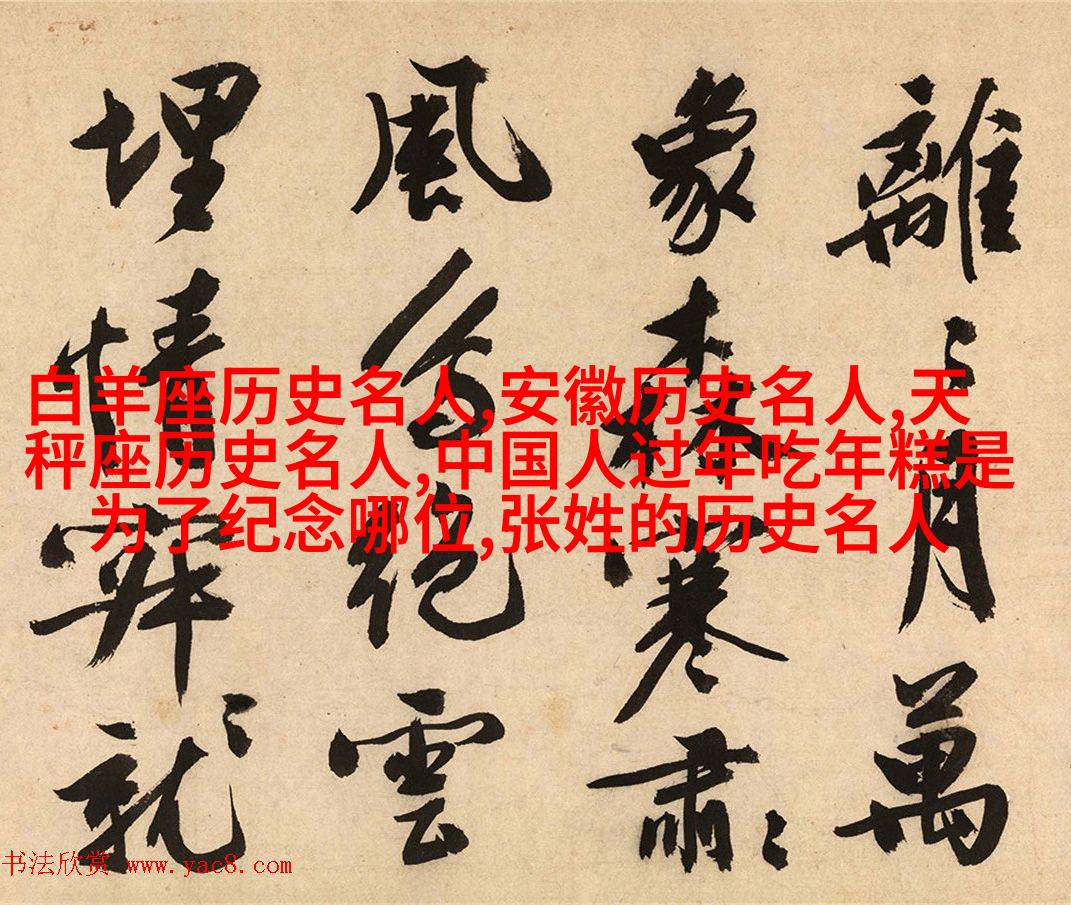 離〻月萬
象森寒肅〻
風絕雲
埋情就〻
白羊座历史名人,安徽历史名人,天
秤座历史名人,中国人过年吃年糕是
为了纪念哪位,张姓的历史名人
书法欣赏 www.yac8.com